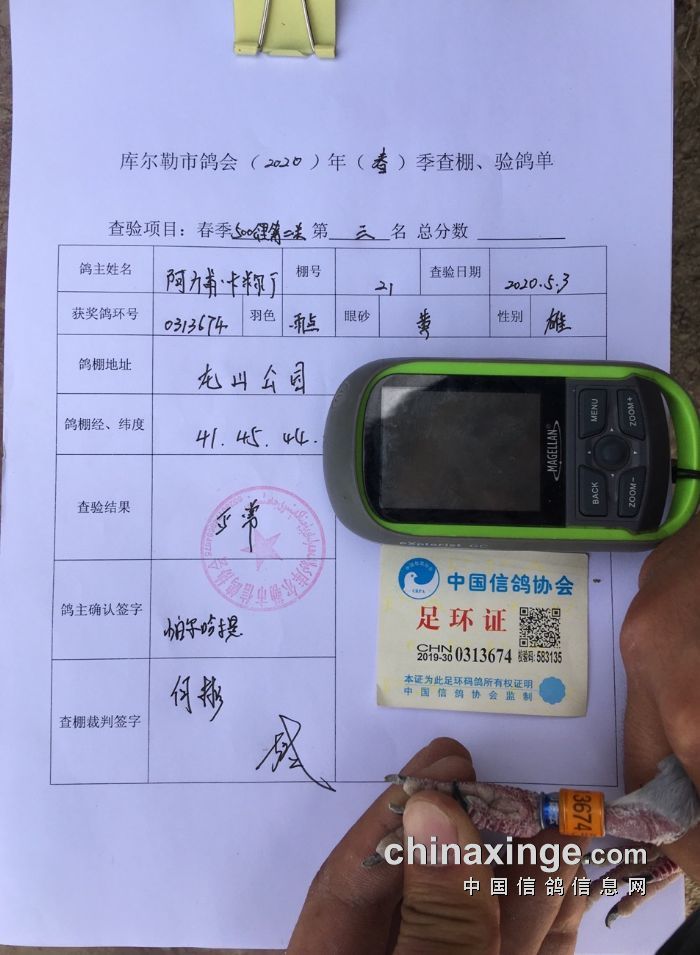 库尔勒市鸽会（2020）年（春）季查棚、验鸽单
查验项目：春季500公里第二关 第 三 名 总分数
鸽主姓名 阿力甫·卡米尔丁 棚号 21 查验日期 2020.5.3
获奖鸽环号 0313674 羽色 雨点 眼砂 黄 性别 雄
鸽棚地址 龙山公园
鸽棚经、纬度 41.45.44.
查验结果 正常
鸽主确认签字
查棚裁判签字 何彬
库尔勒市信鸽协会
MAGELLAN
MENU
ZOOM+
BACK
ZOOM-
eXplorist GC
中国信鸽协会
足环证
CHN
2019-30 0313674 校验码: 583135
本证为此足环码鸽所有权证明
中国信鸽协会监制
3674
chinaxinge.com
中国信鸽信息网